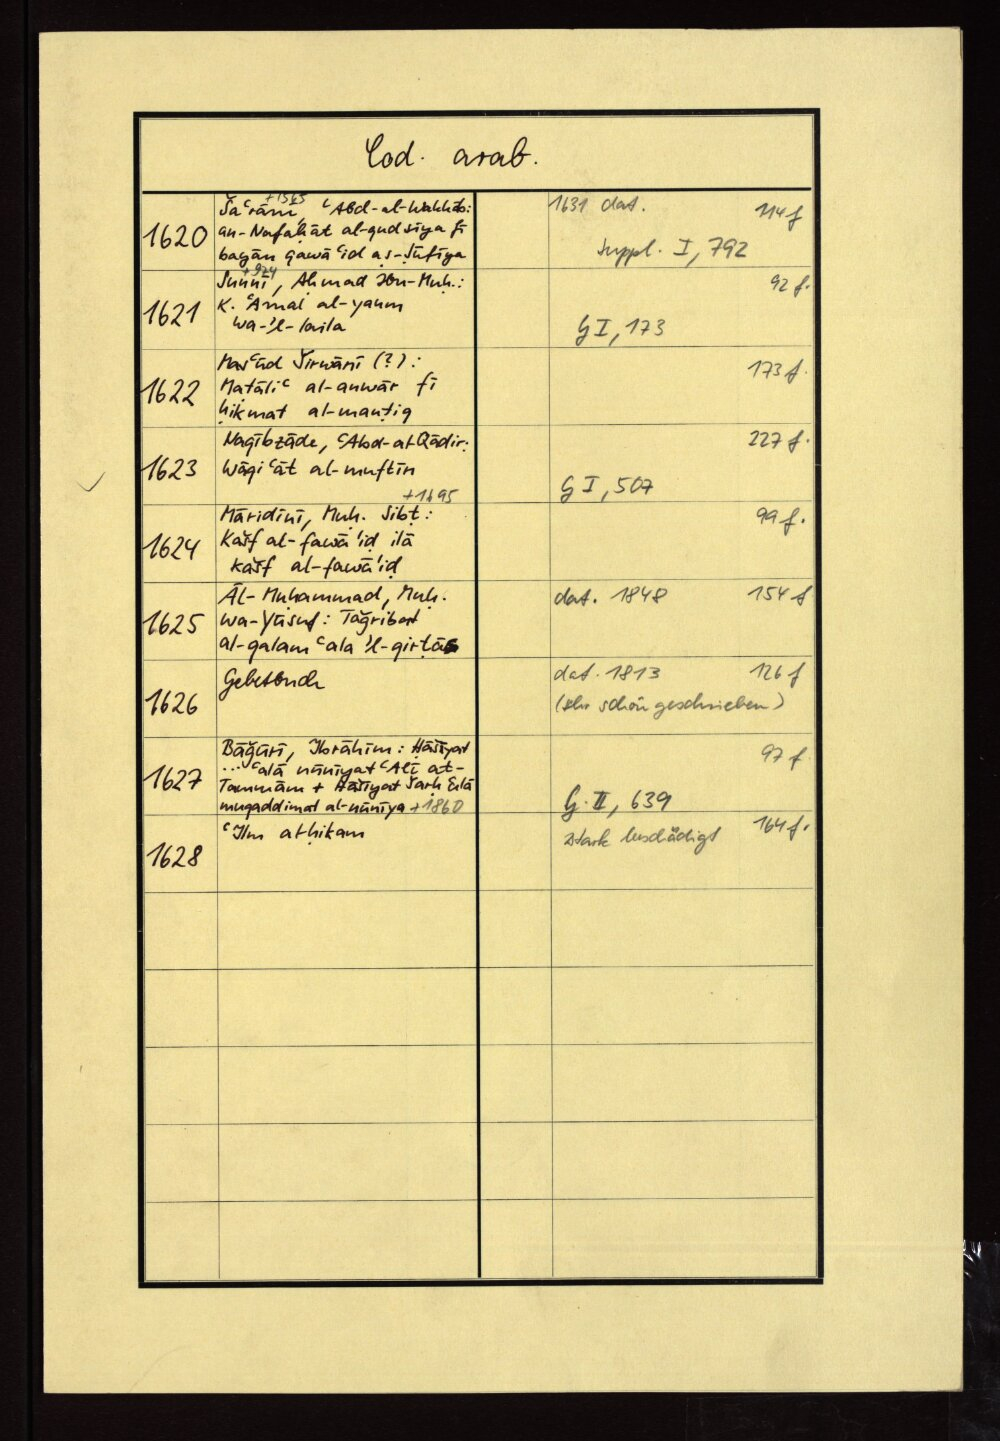 Cod. arab.
+1565
1620
Šaʿrānī, ʿAbd-al-Wahhāb:
an-Nafaḥāt al-qudsīya fī
bayān qawāʿid aṣ-Ṣūfīya
1631 dat.
114 f
Suppl. I, 792
+974
1621
Sunnī, Aḥmad Ibn-Muḥ.:
K. ʿAmal al-yaum
wa-'l-laila
92 f.
G I, 173
1622
Masʿūd Širwānī (?):
Maṭāliʿ al-anwār fī
ḥikmat al-manṭiq
173 f.
1623
Naqībzāde, ʿAbd-al-Qādir:
Wāqiʿāt al-muftīn
+1695
227 f.
G I, 507
1624
Māridīnī, Muḥ. Sibṭ:
Kašf al-fawā'id ilā
kašf al-fawā'id
99 f.
1625
Āl-Muḥammad, Muḥ.
wa-Yūsuf: Taǧribat
al-qalam ʿala 'l-qirṭās
dat. 1848
154 f
1626
Gebetbuch
dat. 1813
126 f
(sehr schön geschrieben)
1627
Bāǧūrī, Ibrāhīm: Ḥāšiyat
... ʿalā nūnīyat ʿAlī at-
Tammām + Ḥāšiyat Šarḥ
muqaddimat al-nūnīya +1860
97 f
G. II, 639
1628
ʿIlm al-ḥikam
stark beschädigt
164 f.